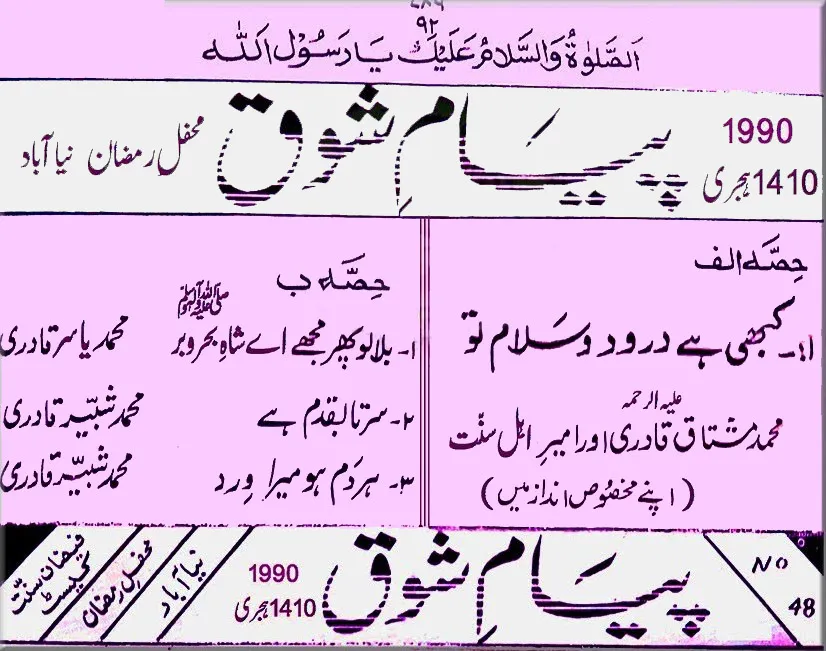 ۷۸۶
۹۲
اَلصَّلوٰۃُ وَالسَّلَامُ عَلَیْكَ یَا رَسُوْلَ اللہ
پیامِ شوق
1990
1410 ہجری
محفلِ رمضان نیا آباد
حِصّہ الف
۱۔ کبھی ہے درود و سَلام تو
محمد مشتاق قادری علیہ الرحمہ اور امیرِ اہلِ سنّت
(اپنے مخصُوص انداز میں)
حِصّہ ب
۱۔ بلا لو پھر مجھے اے شاہِ بحر و بر ﷺ محمد یاسر قادری
۲۔ سر تا بقدم ہے محمد شبیّر قادری
۳۔ ہر دَم ہو میرا وِرد محمد شبیّر قادری
NO
48
پیامِ شوق
1990
1410 ہجری
نیا آباد
محفلِ رمضان
فیضانِ سنّت
کیسٹ